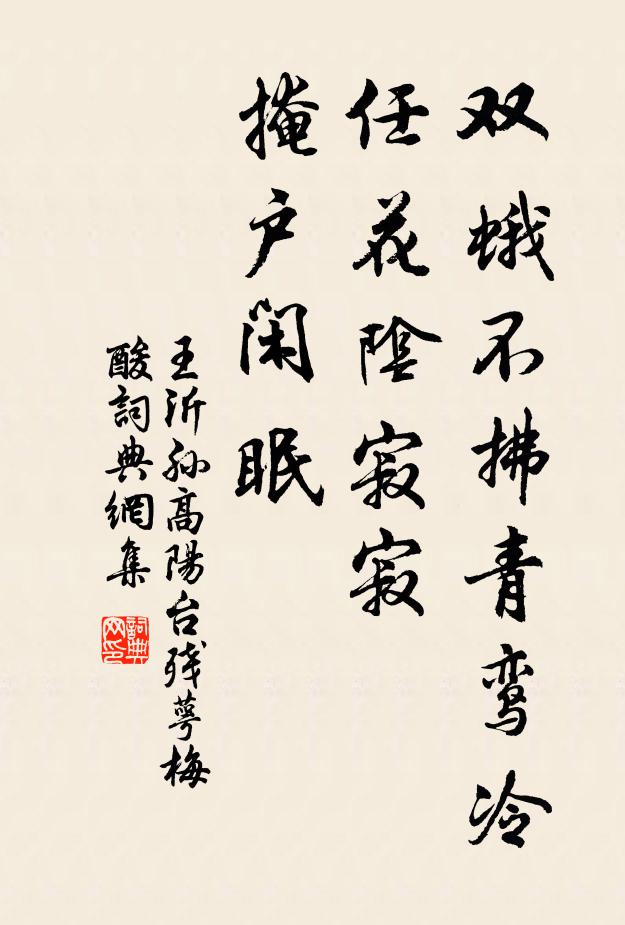 双蛾不拂青鸾冷
任花陰寂寂
掩户闲眠
王沂孙高陽台残萼梅
酸詞典網集
詞典網印